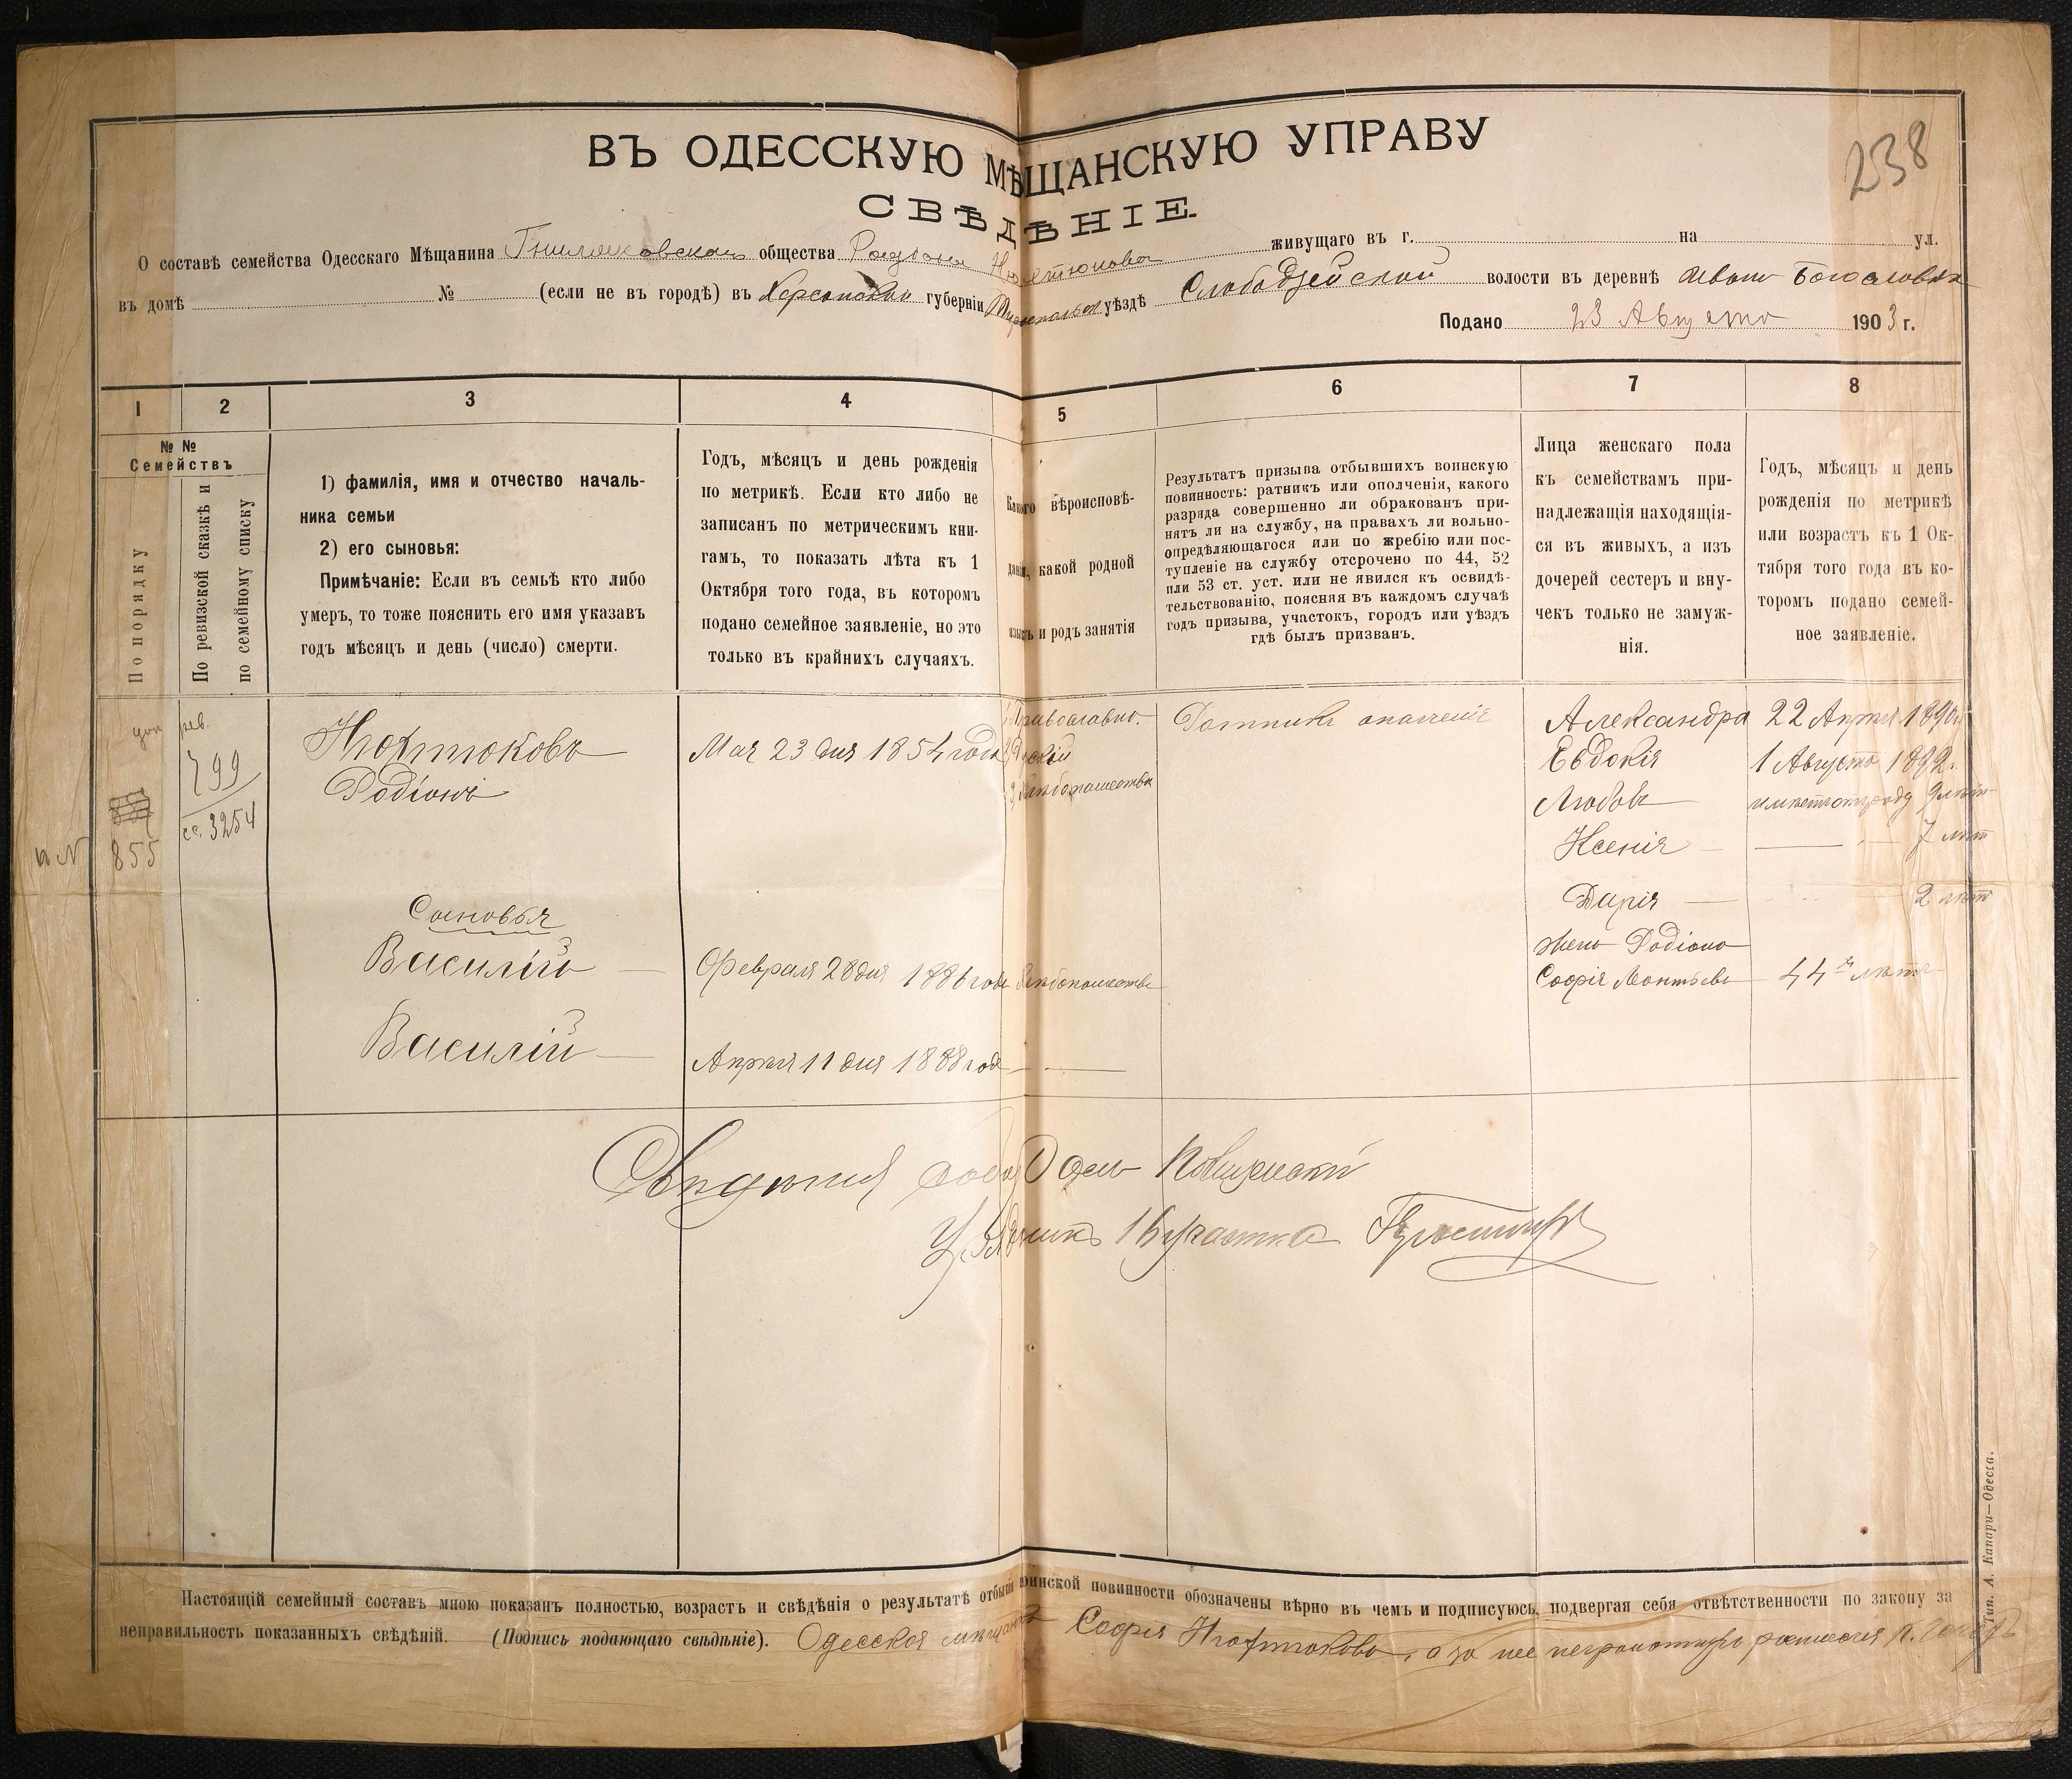 238
ВЪ ОДЕССКУЮ МѢЩАНСКУЮ УПРАВУ
СВѢДѢНІЕ.
О составѣ семейства Одесскаго Мѣщанина Гниляковскаго общества Родіона живущаго въ г. на ул.
въ домѣ № (если не въ городѣ) въ Херсонской губерніи уѣздѣ Слободзейской волости въ деревнѣ
Подано 23 Августа 1903 г.
1 2 3 4 5 6 7 8
№ №
Семействъ
По порядку
По ревизской сказкѣ и
по семейному списку
1) фамилія, имя и отчество началь-
ника семьи
2) его сыновья:
Примѣчаніе: Если въ семьѣ кто либо
умеръ, то тоже пояснить его имя указавъ
годъ мѣсяцъ и день (число) смерти.
Годъ, мѣсяцъ и день рожденія
по метрикѣ. Если кто либо не
записанъ по метрическимъ кни-
гамъ, то показать лѣта къ 1
Октября того года, въ которомъ
подано семейное заявленіе, но это
только въ крайнихъ случаяхъ.
Какого вѣроисповѣ-
данія, какой родной
языкъ и родъ занятія
Результатъ призыва отбывшихъ воинскую
повинность: ратникъ или ополченія, какого
разряда совершенно ли обракованъ при-
нятъ ли на службу, на правахъ ли вольно-
опредѣляющагося или по жребію или пос-
тупленіе на службу отсрочено по 44, 52
или 53 ст. уст. или не явился къ освидѣ-
тельствованію, поясняя въ каждомъ случаѣ
годъ призыва, участокъ, городъ или уѣздъ
гдѣ былъ призванъ.
Лица женскаго пола
къ семействамъ при-
надлежащія находящія-
ся въ живыхъ, а изъ
дочерей сестеръ и вну-
чекъ только не замуж-
нія.
Годъ, мѣсяцъ и день
рожденія по метрикѣ
или возрастъ къ 1 Ок-
тября того года въ ко-
торомъ подано семей-
ное заявленіе.
рев.
799
сс. 3254
855
Родіонъ
Мая 23 дня 1854 года
1) Православн.
2) Рускій
3) Хлѣбопашества
Ратникъ ополченія
Александра 22 Апрѣля 1890
Евдокія 1 Августа 1892 г.
Любовь 9 лѣтъ
Ксенія — 7 лѣт
Дарія — 2 лѣт
жена Родіона
Софія Леонтьева 44 лѣтъ
Сыновья
Василій — Февраля 28 дня 1886 года Хлѣбопашество
Василій — Апрѣля 11 дня 1888 года —
Урядникъ 16 участка
Настоящій семейный составъ мною показанъ полностью, возрастъ и свѣдѣнія о результатѣ отбытія воинской повинности обозначены вѣрно въ чемъ и подписуюсь, подвергая себя отвѣтственности по закону за
неправильность показанныхъ свѣдѣній. (Подпись подающаго свѣдѣніе). Одесская мѣщанка Софія а за нее неграмотную росписался
Тип. А. Катари—Одесса.